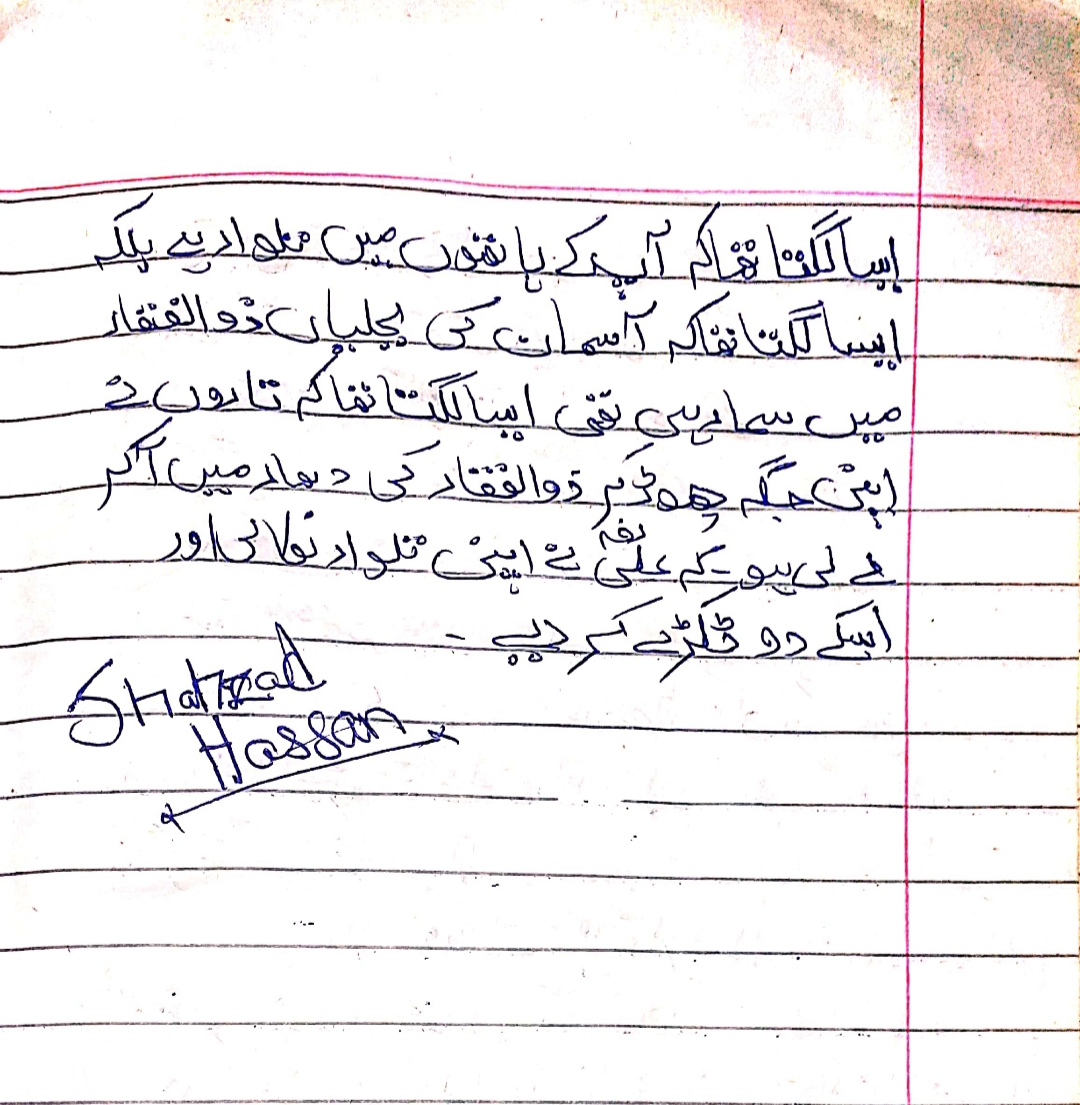 ایسا لگتا تھا کہ آپ کے ہاتھوں میں تلوار ہے بلکہ
ایسا لگتا تھا کہ آسمان کی بجلیاں ذوالفقار
میں سما رہی تھی ایسا لگتا تھا کہ تاروں نے
اپنی جگہ چھوڑ کر ذوالفقار کی دھار میں آکر
لے لی ہو ۔ کہ علیؑ نے اپنی تلوار نکالی اور
اسکے دو ٹکڑے کر دیے ۔
Shahzad
Hassan